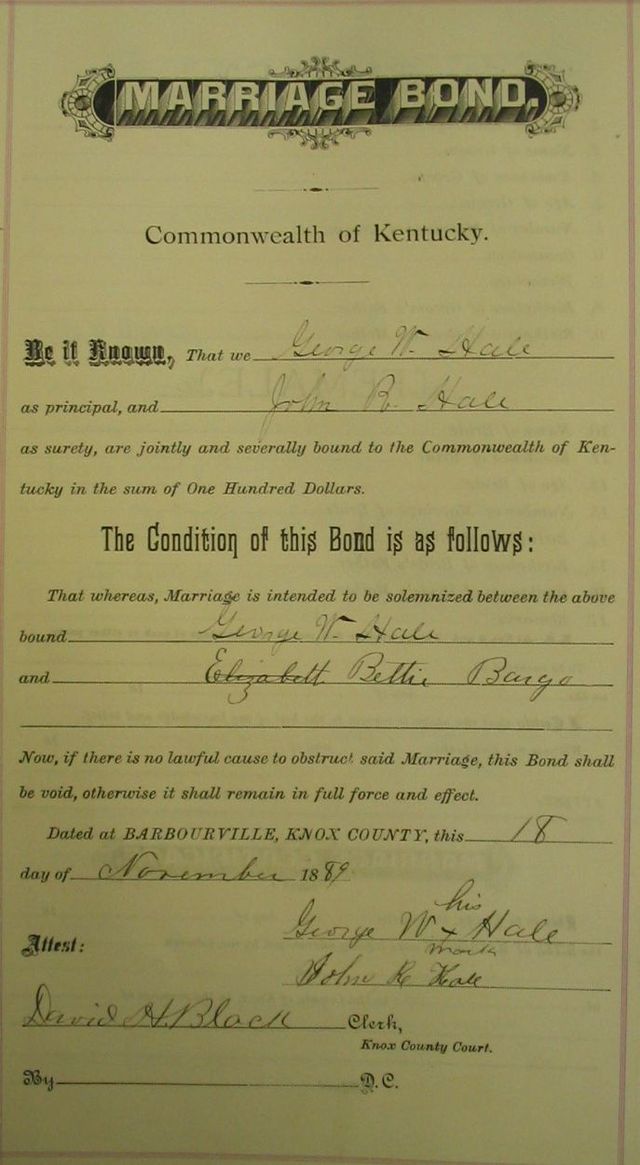 MARRIAGE BOND.
Commonwealth of Kentucky.
Be it Known, That we George W. Hale
as principal, and John R. Hale
as surety, are jointly and severally bound to the Commonwealth of Ken-
tucky in the sum of One Hundred Dollars.
The Condition of this Bond is as follows:
That whereas, Marriage is intended to be solemnized between the above
bound George W. Hale
and Elizabeth Bettie Bargo
Now, if there is no lawful cause to obstruct said Marriage, this Bond shall
be void, otherwise it shall remain in full force and effect.
Dated at BARBOURVILLE, KNOX COUNTY, this 18
day of November 1889
his
George W x Hale
Attest:
mark
John R Hale
David H. Black Clerk,
Knox County Court.
By D.C.